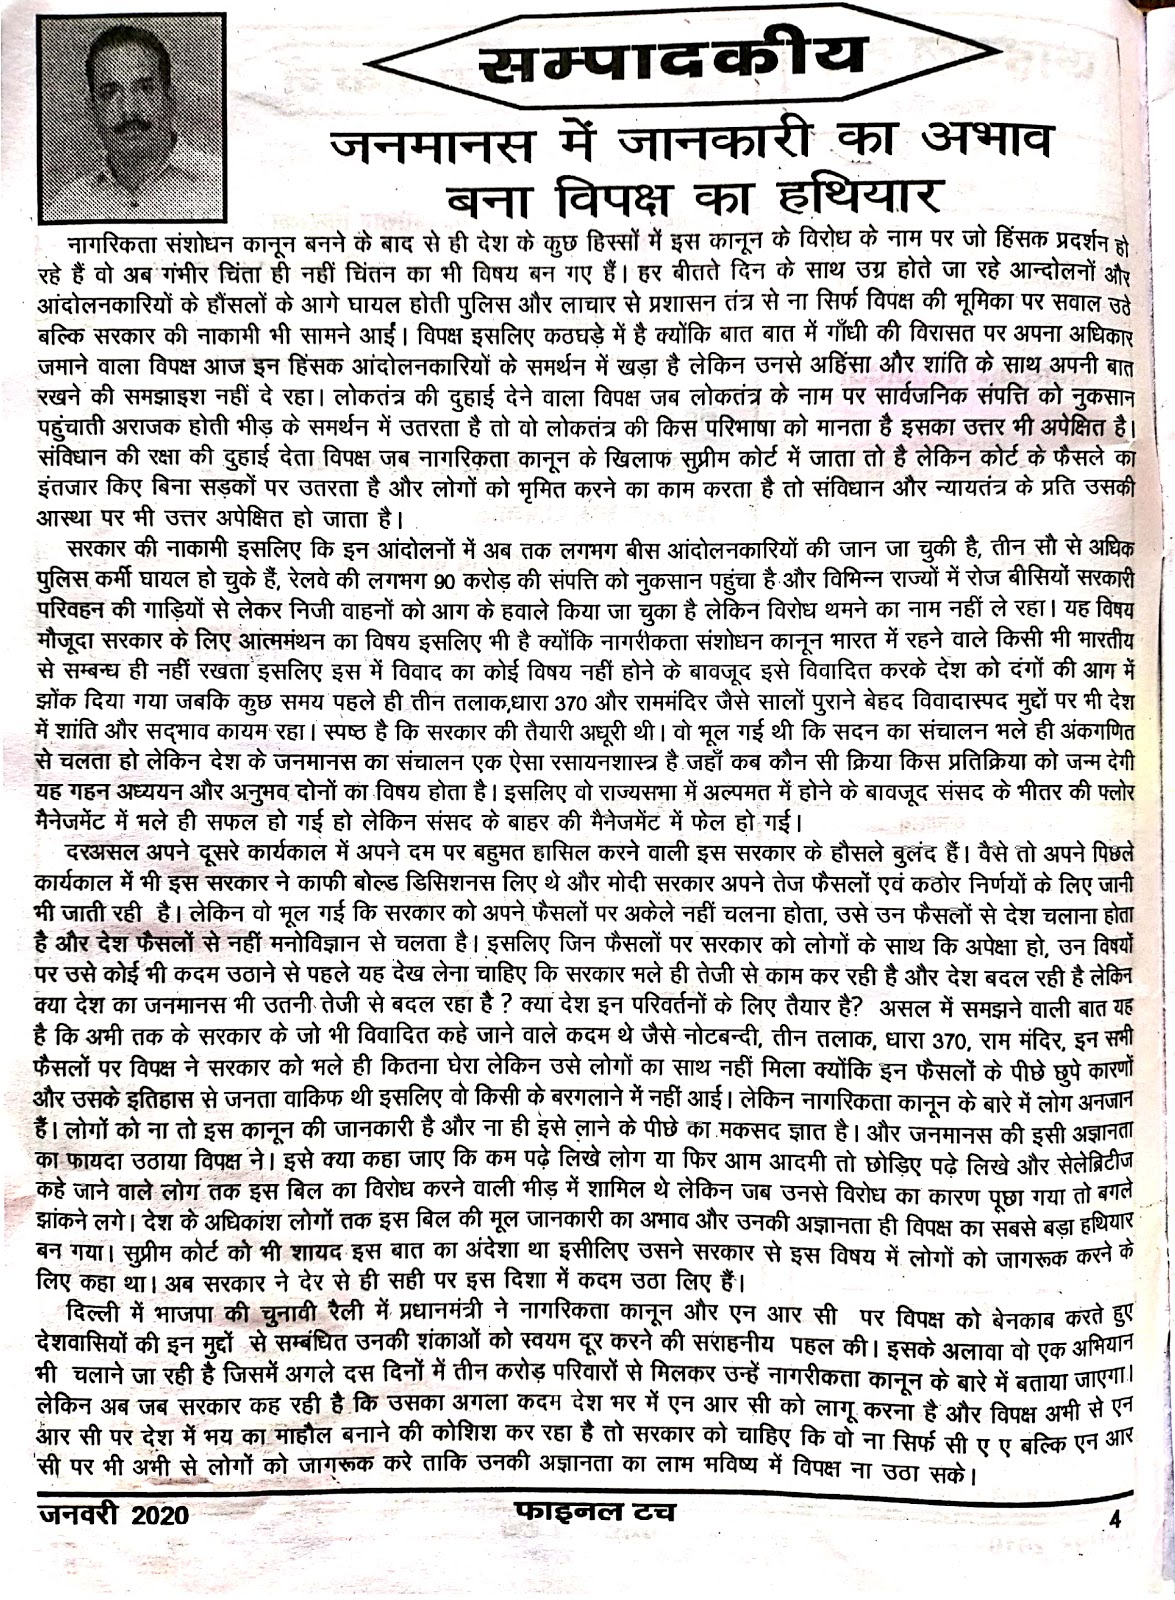 सम्पादकीय
जनमानस में जानकारी का अभाव
बना विपक्ष का हथियार
नागरिकता संशोधन कानून बनने के बाद से ही देश के कुछ हिस्सों में इस कानून के विरोध के नाम पर जो हिंसक प्रदर्शन हो
रहे हैं वो अब गंभीर चिंता ही नहीं चिंतन का भी विषय बन गए हैं। हर बीतते दिन के साथ उग्र होते जा रहे आन्दोलनों और
आंदोलनकारियों के हौंसलों के आगे घायल होती पुलिस और लाचार से प्रशासन तंत्र से ना सिर्फ विपक्ष की भूमिका पर सवाल उठे
बल्कि सरकार की नाकामी भी सामने आई। विपक्ष इसलिए कठघड़े में है क्योंकि बात बात में गाँधी की विरासत पर अपना अधिकार
जमाने वाला विपक्ष आज इन हिंसक आंदोलनकारियों के समर्थन में खड़ा है लेकिन उनसे अहिंसा और शांति के साथ अपनी बात
रखने की समझाइश नहीं दे रहा। लोकतंत्र की दुहाई देने वाला विपक्ष जब लोकतंत्र के नाम पर सार्वजनिक संपत्ति को नुकसान
पहुंचाती अराजक होती भीड़ के समर्थन में उतरता है तो वो लोकतंत्र की किस परिभाषा को मानता है इसका उत्तर भी अपेक्षित है।
संविधान की रक्षा की दुहाई देता विपक्ष जब नागरिकता कानून के खिलाफ सुप्रीम कोर्ट में जाता तो है लेकिन कोर्ट के फैसले का
इंतजार किए बिना सड़कों पर उतरता है और लोगों को भृमित करने का काम करता है तो संविधान और न्यायतंत्र के प्रति उसकी
आस्था पर भी उत्तर अपेक्षित हो जाता है।
सरकार की नाकामी इसलिए कि इन आंदोलनों में अब तक लगभग बीस आंदोलनकारियों की जान जा चुकी है, तीन सौ से अधिक
पुलिस कर्मी घायल हो चुके हैं, रेलवे की लगभग 90 करोड़ की संपत्ति को नुकसान पहुंचा है और विभिन्न राज्यों में रोज बीसियों सरकारी
परिवहन की गाड़ियों से लेकर निजी वाहनों को आग के हवाले किया जा चुका है लेकिन विरोध थमने का नाम नहीं ले रहा। यह विषय
मौजूदा सरकार के लिए आत्ममंथन का विषय इसलिए भी है क्योंकि नागरीकता संशोधन कानून भारत में रहने वाले किसी भी भारतीय
से सम्बन्ध ही नहीं रखता इसलिए इस में विवाद का कोई विषय नहीं होने के बावजूद इसे विवादित करके देश को दंगों की आग में
झोंक दिया गया जबकि कुछ समय पहले ही तीन तलाक,धारा 370 और राममंदिर जैसे सालों पुराने बेहद विवादास्पद मुद्दों पर भी देश
में शांति और सद्भाव कायम रहा। स्पष्ठ है कि सरकार की तैयारी अधूरी थी। वो भूल गई थी कि सदन का संचालन भले ही अंकगणित
से चलता हो लेकिन देश के जनमानस का संचालन एक ऐसा रसायनशास्त्र है जहाँ कब कौन सी क्रिया किस प्रतिक्रिया को जन्म देगी
यह गहन अध्ययन और अनुभव दोनों का विषय होता है। इसलिए वो राज्यसभा में अल्पमत में होने के बावजूद संसद के भीतर की फ्लोर
मैनेजमेंट में भले ही सफल हो गई हो लेकिन संसद के बाहर की मैनेजमेंट में फेल हो गई।
दरअसल अपने दूसरे कार्यकाल में अपने दम पर बहुमत हासिल करने वाली इस सरकार के हौसले बुलंद हैं। वैसे तो अपने पिछले
कार्यकाल में भी इस सरकार ने काफी बोल्ड डिसिशनस लिए थे और मोदी सरकार अपने तेज फैसलों एवं कठोर निर्णयों के लिए जानी
भी जाती रही है। लेकिन वो भूल गई कि सरकार को अपने फैसलों पर अकेले नहीं चलना होता, उसे उन फैसलों से देश चलाना होता
है और देश फैसलों से नहीं मनोविज्ञान से चलता है। इसलिए जिन फैसलों पर सरकार को लोगों के साथ कि अपेक्षा हो, उन विषयों
पर उसे कोई भी कदम उठाने से पहले यह देख लेना चाहिए कि सरकार भले ही तेजी से काम कर रही है और देश बदल रही है लेकिन
क्या देश का जनमानस भी उतनी तेजी से बदल रहा है ? क्या देश इन परिवर्तनों के लिए तैयार है? असल में समझने वाली बात यह
है कि अभी तक के सरकार के जो भी विवादित कहे जाने वाले कदम थे जैसे नोटबन्दी, तीन तलाक, धारा 370, राम मंदिर, इन सभी
फैसलों पर विपक्ष ने सरकार को भले ही कितना घेरा लेकिन उसे लोगों का साथ नहीं मिला क्योंकि इन फैसलों के पीछे छुपे कारणों
और उसके इतिहास से जनता वाकिफ थी इसलिए वो किसी के बरगलाने में नहीं आई। लेकिन नागरिकता कानून के बारे में लोग अनजान
हैं। लोगों को ना तो इस कानून की जानकारी है और ना ही इसे लाने के पीछे का मकसद ज्ञात है। और जनमानस की इसी अज्ञानता
का फायदा उठाया विपक्ष ने। इसे क्या कहा जाए कि कम पढ़े लिखे लोग या फिर आम आदमी तो छोड़िए पढ़े लिखे और सेलेब्रिटीज
कहे जाने वाले लोग तक इस बिल का विरोध करने वाली भीड़ में शामिल थे लेकिन जब उनसे विरोध का कारण पूछा गया तो बगले
झांकने लगे। देश के अधिकांश लोगों तक इस बिल की मूल जानकारी का अभाव और उनकी अज्ञानता ही विपक्ष का सबसे बड़ा हथियार
बन गया। सुप्रीम कोर्ट को भी शायद इस बात का अंदेशा था इसीलिए उसने सरकार से इस विषय में लोगों को जागरूक करने के
लिए कहा था। अब सरकार ने देर से ही सही पर इस दिशा में कदम उठा लिए हैं।
दिल्ली में भाजपा की चुनावी रैली में प्रधानमंत्री ने नागरिकता कानून और एन आर सी पर विपक्ष को बेनकाब करते हुए
देशवासियों की इन मुद्दों से सम्बंधित उनकी शंकाओं को स्वयम दूर करने की सराहनीय पहल की। इसके अलावा वो एक अभियान
भी चलाने जा रही है जिसमें अगले दस दिनों में तीन करोड़ परिवारों से मिलकर उन्हें नागरीकता कानून के बारे में बताया जाएगा।
लेकिन अब जब सरकार कह रही है कि उसका अगला कदम देश भर में एन आर सी को लागू करना है और विपक्ष अभी से एन
आर सी पर देश में भय का माहौल बनाने की कोशिश कर रहा है तो सरकार को चाहिए कि वो ना सिर्फ सी ए ए बल्कि एन आर
सी पर भी अभी से लोगों को जागरूक करे ताकि उनकी अज्ञानता का लाभ भविष्य में विपक्ष ना उठा सके।
जनवरी 2020 फाइनल टच 4